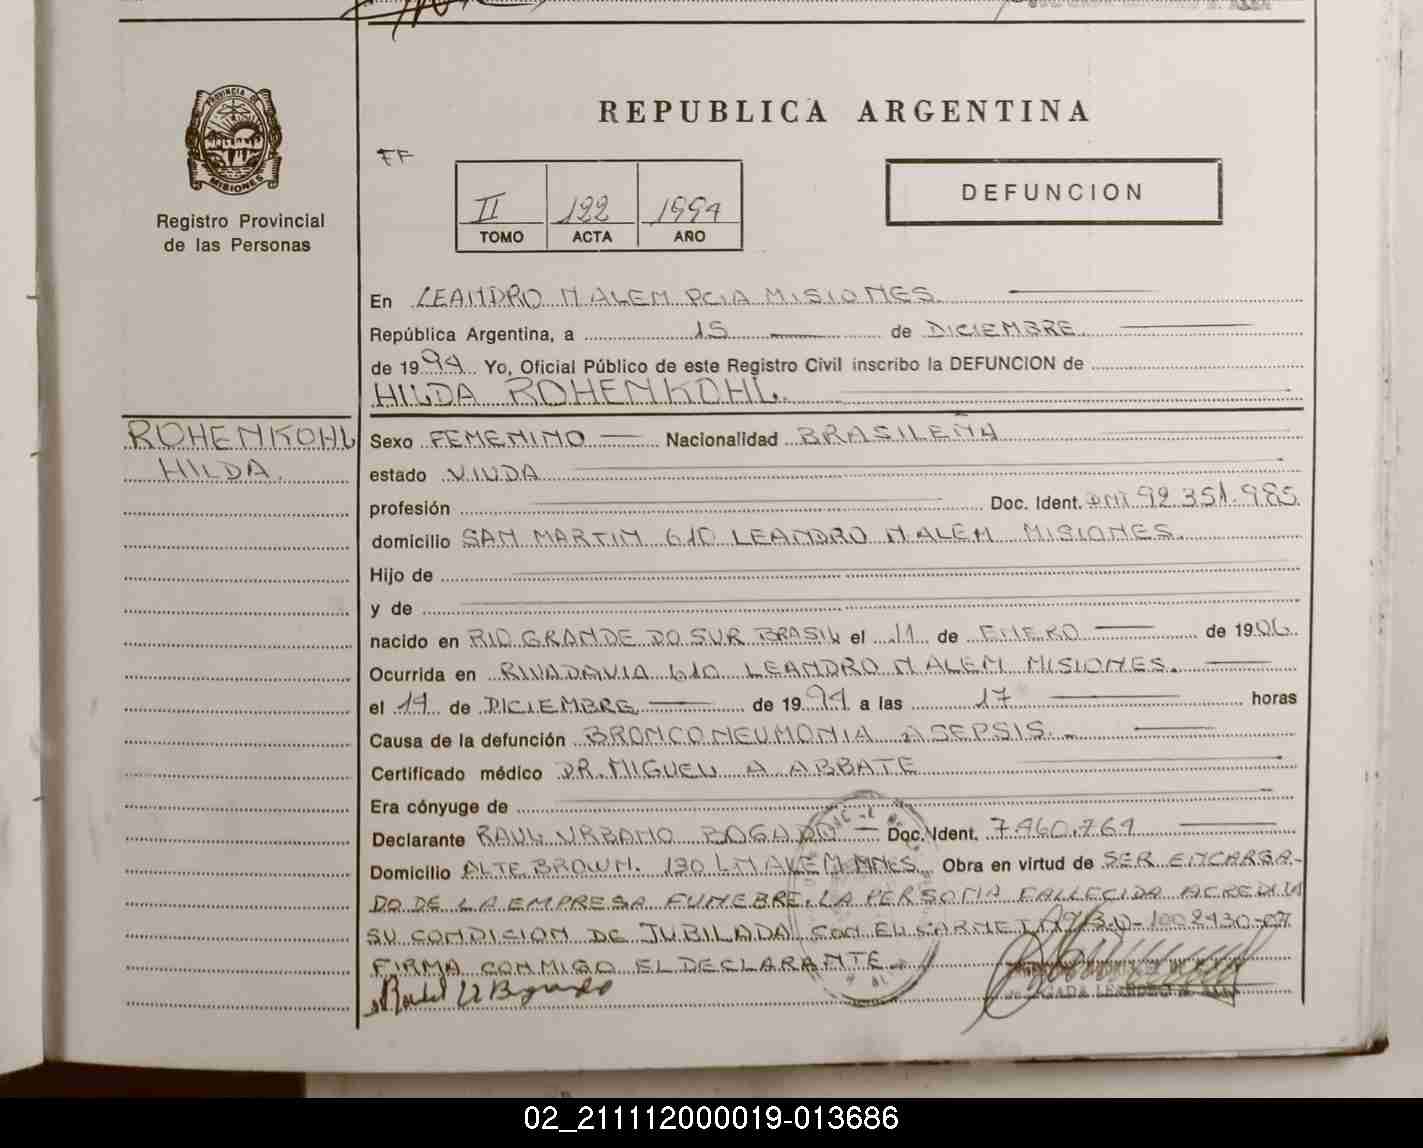 PROVINCIA DE
MISIONES
Registro Provincial
de las Personas
REPUBLICA ARGENTINA
FF
II 122 1994
TOMO ACTA AÑO
DEFUNCION
En LEANDRO N ALEM PCIA MISIONES
República Argentina, a 15 de DICIEMBRE
de 1994 Yo, Oficial Público de este Registro Civil inscribo la DEFUNCION de
HILDA ROHENKOHL.
ROHENKOHL
HILDA.
Sexo FEMENINO Nacionalidad BRASILEÑA
estado VIUDA
profesión Doc. Ident. DNI 92.351.985
domicilio SAN MARTIN 610 LEANDRO N ALEM MISIONES.
Hijo de
y de
nacido en RIO GRANDE DO SUR BRASIL el 11 de ENERO de 1906
Ocurrida en RIVADAVIA 610 LEANDRO N ALEM MISIONES.
el 14 de DICIEMBRE de 1994 a las 17 horas
Causa de la defunción BRONCONEUMONIA SEPSIS.
Certificado médico DR. MIGUEL A ABBATE
Era cónyuge de
Declarante RAUL URBANO BOGADO Doc. Ident. 7.460.764
Domicilio ALTE BROWN. 130 L N ALEM MNES. Obra en virtud de SER ENCARGA-
DO DE LA EMPRESA FUNEBRE. LA PERSONA FALLECIDA ACREDITA
SU CONDISION DE JUBILADA CON EL CARNET
FIRMA CONMIGO EL DECLARANTE
02_211112000019-013686